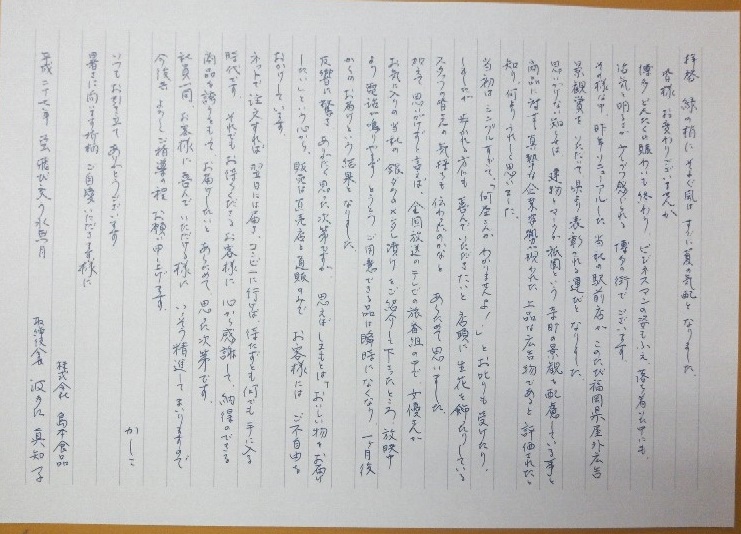 拝啓 緑の梢に そよぐ風は すでに夏の気配となりました。
皆様 お変わりございませんか
博多どんたくの賑わいも終わり ビジネスマンの姿もふえ、落ち着いた中にも、
活気と明るさが 感じられる 博多の街で ございます。
その様な中 昨年リニューアルした 当社の駅前店が このたび福岡県屋外広告
景観賞を いただいて 県より表彰される運びと なりました。
思いがけない知らせは 建物とマークが祇園という 寺町の景観を配慮している事と
商品に対する真摯な企業姿勢が現われた 上品な広告物であると 評価されたと
知り 何より うれしく思いました。
当初は シンプルすぎて、「何屋さんか わかりませんよ!」と お叱りも 受けたり、
しましたが 歩かれる方にも 喜んでいただきたいと 店頭に 生花を飾ったりしている
スタッフの皆さんの 気持ちも 伝わったのかなと あらためて思いました。
加えて 思いがけずと言えば、全国放送のテレビの旅番組の中で、女優さんが
お気に入りの当社の 銀ダラのみりん漬け をご紹介して下さったところ 放映中
より 電話が鳴りやまず とうとう ご用意できる品は瞬時になくなり、一ヶ月後
からのお届けという結果となりました。
反響に驚き ありがたく思った次第ですが、 思えば しまもとは「おいしい物をお届け
したい」という心から、販売は直売店と通販のみで お客様には ご不自由を
おかけしています。
ネットで注文すれば 翌日には届き、コンビニに行けば 待たずとも何でも 手に入る
時代です。それでもお待ちくださるお客様に 心から感謝して、納得のできる
商品を誇りをもって、お届けしたいと あらためて 思った次第です。
社員一同、お客様に 喜んでいただける様に いっそう精進してまいりますので
今後共 よろしくご指導の程 お願い申し上げます。
いつもお引き立て ありがとうございます
暑さに向います折柄 ご自愛いただきます様に
かしこ
平成二十七年 蛍飛び交う水無月
株式会社 島本食品
取締役会 波多江 真知子